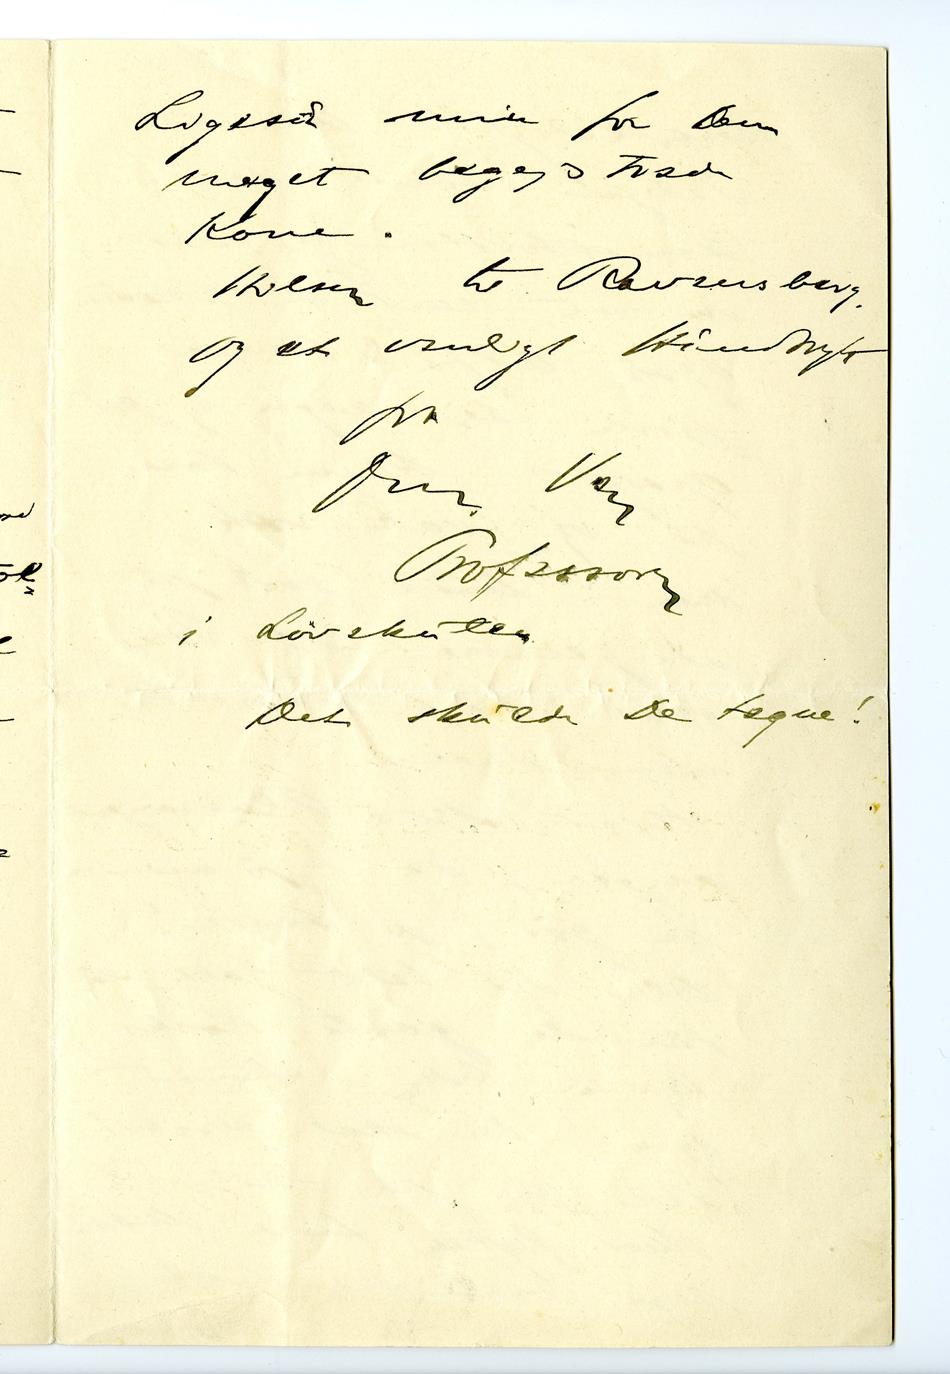 Ligeså min for Dem
meget begejstrede
Kone.
Hilsen til Ravensberg.
og et venligt Håndtryk
fra
Deres Ven
Professoren
i Løvehulen
Det skulde De tegne!